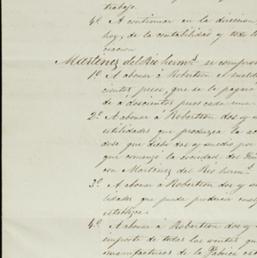 trabajo.
4º A continuar en la direccion
hoy, de la contabilidad y
Martinez del Rio herm.s se compro
1º A abonar á Robertson el sueldo
cientos pesos, que se le paga
de á doscientos pesos cada uno
2º A abonar á Robertson dos y
utilidades que produzca la
desde que dicho dos y medio por
que comenzó la sociedad del
con Martinez del Rio herm.s
3º A abonar á Robertson dos y
lidades que puede producir
establezca.
4º A abonar á Robertson dos y
importe de todas las ventas que
manufacturas de la Fabrica